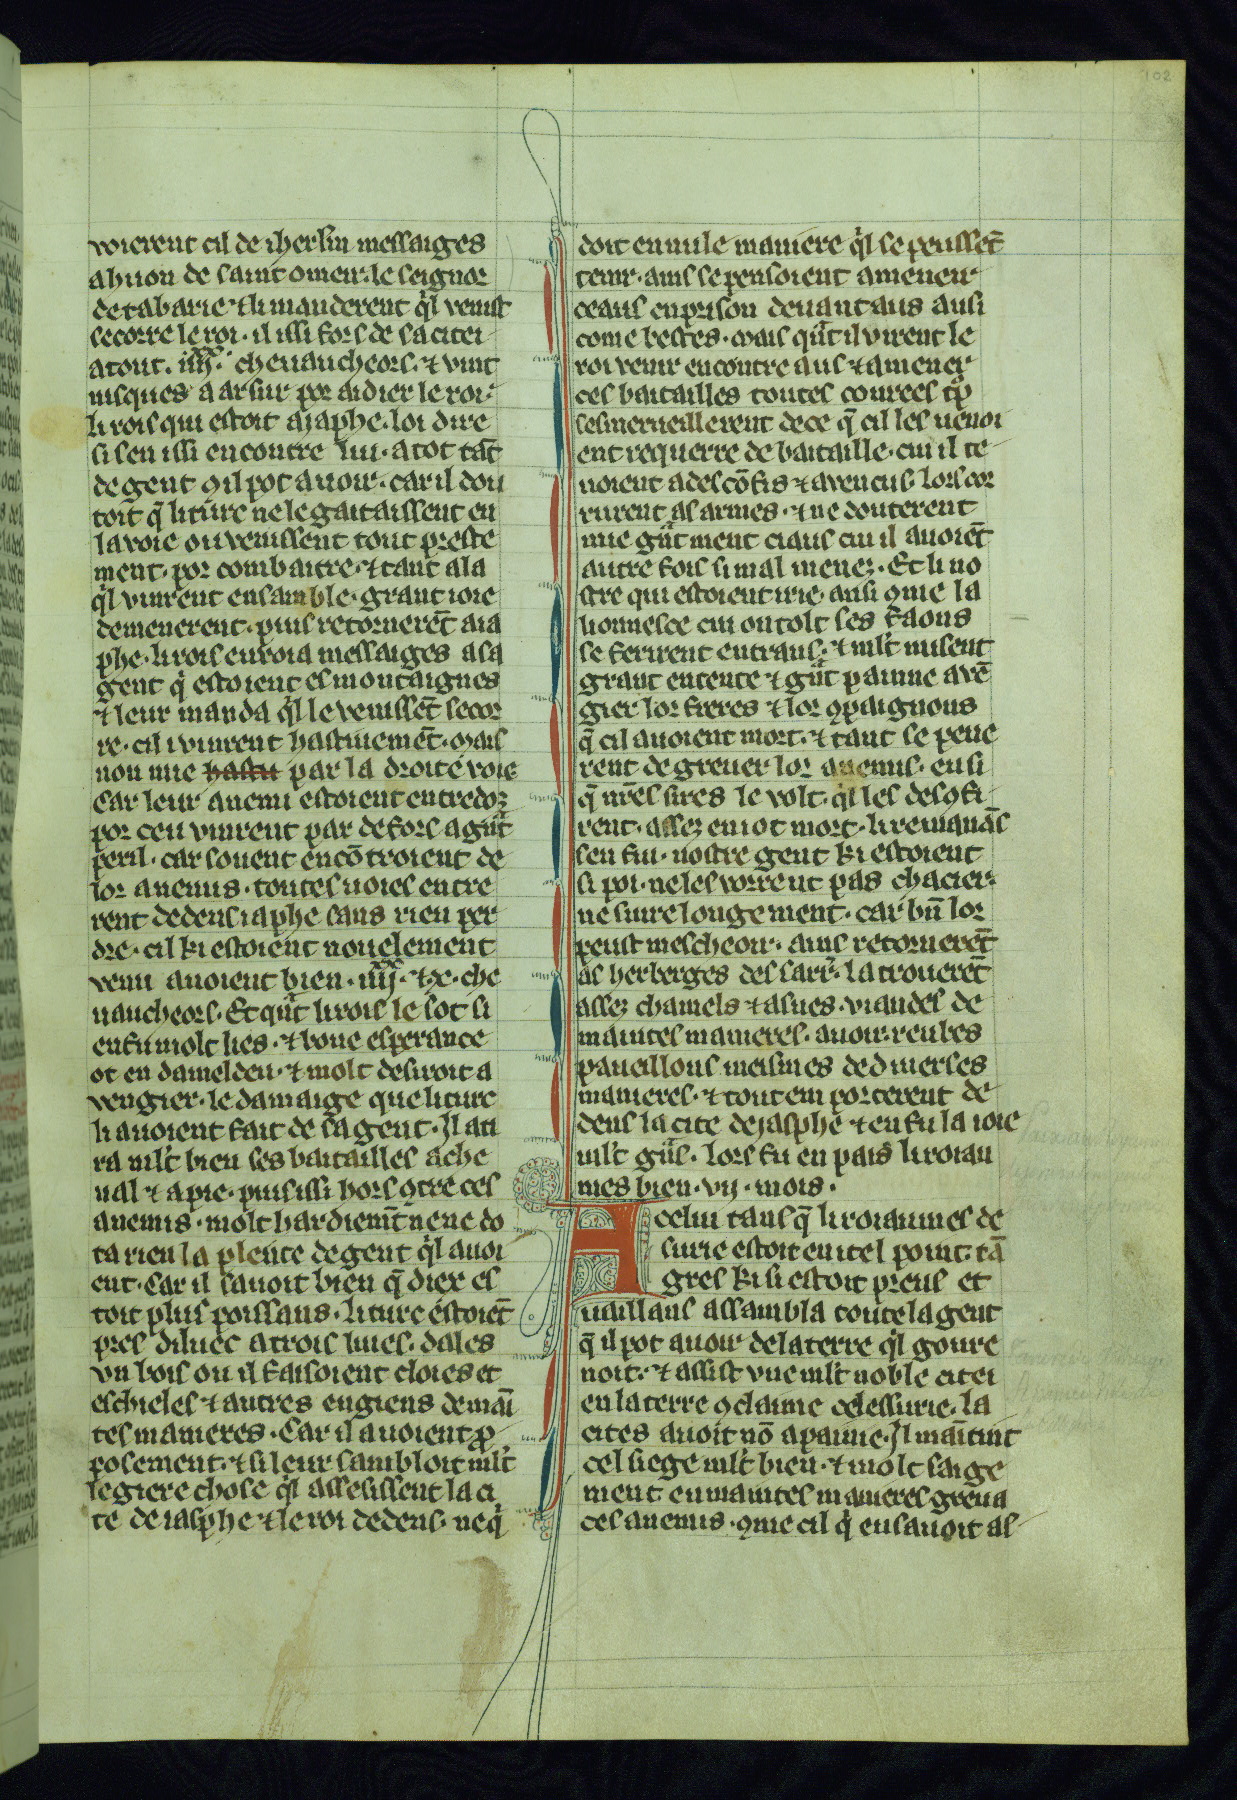 102
voierent cil de iherlin messaiges
a huon de saint omeir. le seignor
de tabarie ⁊ li manderent q̓l venist
secorre le roi. il issi fors de sa citei
a tout .iiijˣˣ. cheuaucheors. ⁊ vint
iusques a arsur por aidier le roi.
li rois qui estoit a iaphe. loi dire
si sen issi encontre lui. a tot tāt
de gent ꝯ il pot auoir. car il dou
toit q̄ li turc ne le gaitaissent en
la voie ou venissent tout preste
ment. por combaitre. ⁊ tant ala
q̓l vinrent ensamble. grant ioie
demenerent. puis retornerēt a ia
phe. li rois enuoia messaiges a sa
gent q̓ estoient es montaignes
⁊ leur manda q̓l le venissēt secor
re. cil i vinrent hastiuemēt. mais
non mie hastu par la droite voie
Car leur anemi estoient entredoꝫ
por ceu vinrent par defors a gͣnt
peril. car souent encōtroient de
lor anemis. toutes uoies entre
rent dedens iaphe sans rien per
dre. cil ki estoient nouelement
venu auoient bien .iiijˣˣ. ⁊ .x. che
uaucheors. Et qͣnt li rois le sot si
en fu molt lies. ⁊ bone esperance
ot en damelden. ⁊ molt desiroit a
vengier. le damaige que li turc
li auoient fait de sa gent. Il ati
ra mlt bien ses baitailles a che
ual ⁊ a pie. puis issi hors ꝯtre ces
anemis. molt hardiemt̄ ne ne do
ta rien la plente de gent q̓l auoi
ent. Car il sauoit bien q̄ diex es
toit plus poissans. li turc estoiēt
pres diluec a trois liues. dales
vn bois ou il faisoient cloies et
eschieles ⁊ autres engiens de maī
tes manieres. Car il auoient ꝓ
posement. ⁊ si leur sambloit mlt
legiere chose q̓l assesissent la ci
te de iasphe ⁊ le roi dedens. ne q̓
doit en nule maniere q̓l se peussēt
tenir. ains se pensoient a meneir
ceaus en prison deuant aus ausi
come bestes. Mais qͣnt il virent le
roi venir encontre aus ⁊ amener
ces baitailles toutes conrees tp̄
sesmerueillerent de ce q̄ cil les uenoi
ent requerre de baitaille. cui il te
noient a descōfis ⁊ a vencus. lors cor
rurent as armes. ⁊ ne douterent
mie gͣntment ciaus cui il auoiēt
autre fois si mal menez. Et li no
stre qui estoient irie. ausi ꝯme la
lionnesce cui on tolt ses faons
se ferirent entraus. ⁊ mlt misent
grant entente ⁊ gͣnt painne a vē
gier lor freres ⁊ lor ꝯpaignons
q̄ cil auoient mort. ⁊ tant se pene
rent de greuer lor anemis. ensi
q̄ nr̄es sires le volt. q̓l les desꝯfi
rent. assez en i ot mort. li remanās
sen fui. nostre gent ki estoient
si poi. ne les vorrent pas chacier.
ne suire longement. car bn̄ lor
peust mescheoir. ains retornerēt
as herberges des sarr̄. la trouerēt
assez chamels ⁊ asnes. viandes de
maintes manieres. auoir. reubes
paueillons meismes de diuerses
manieres. ⁊ tout emporterent de
dens la cite de jasphe ⁊ en fu la ioie
mlt gͣns. lors fu en pais li roiau
mes bien .vij. mois.
A celui tans q̄ li roiaumes de
surie estoit en itel point. tā
gres ki si estoit preus et
uaillans assambla toute la gent
q̄ il pot auoir de la terre q̓l goure
noit. ⁊ assist vne mlt noble citei
en la terre ꝯ claime celessurie. la
cites auoit nō apamie. Il maītint
cel siege mlt bien. ⁊ molt saige
ment en maintes manieres greua
ces anemis. ꝯme cil q̓ en sauoit as